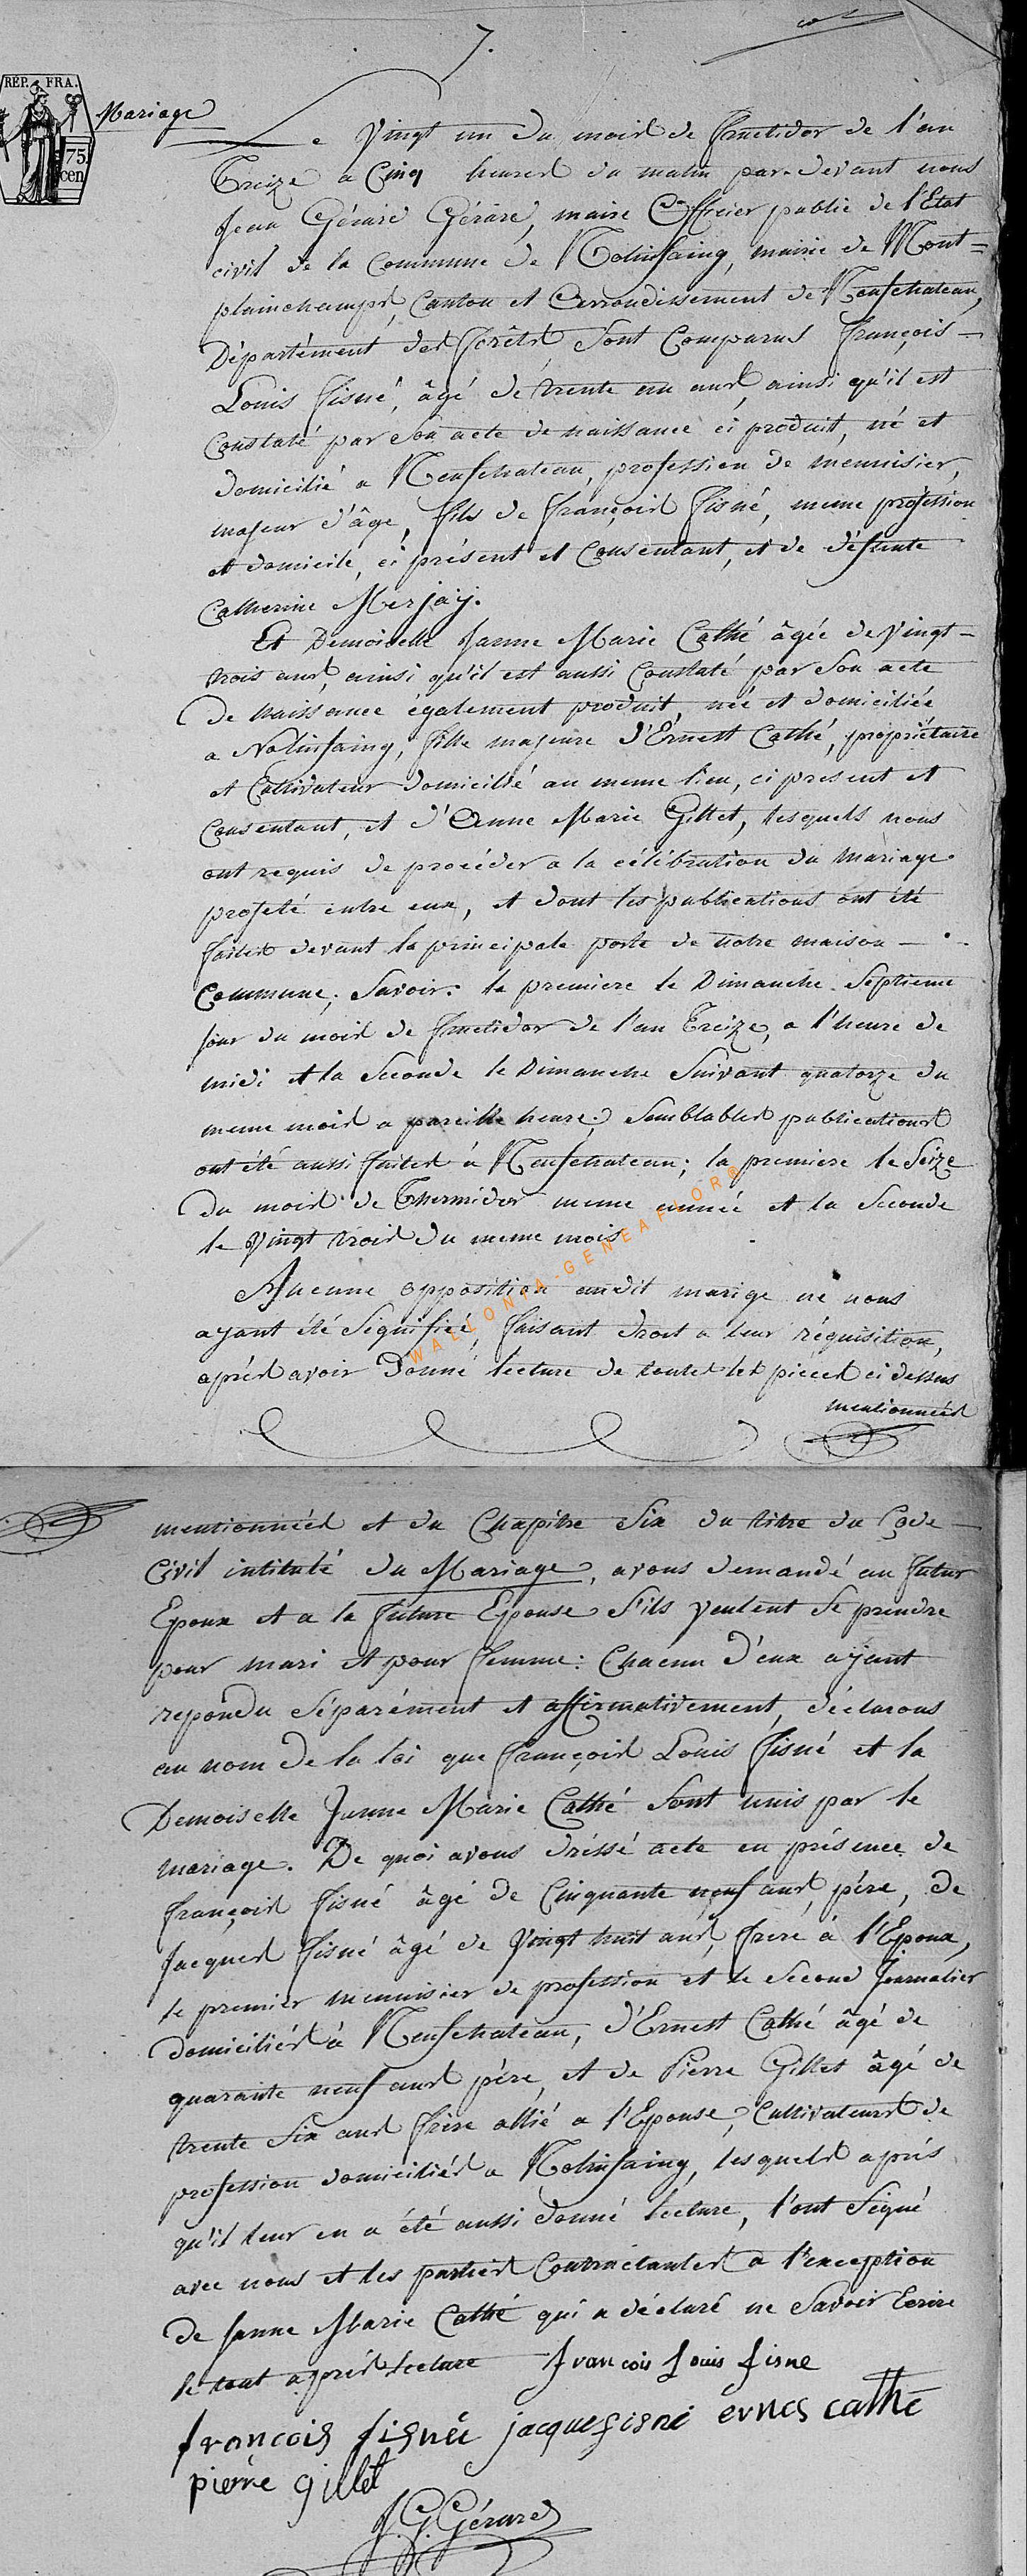 7.
REP. FRA.
75
cen
Mariage
Le Vingt un du mois de fructidor de l'an
Treize a Cinq heures du matin par-devant nous
Jean Gérard Gérard, maire Officier public de l'Etat
civil de la Commune de Nolinfaing, mairie de Mont=
plainchamps, Canton et Arrondissement de Neufchateau,
Département des Forêts Sont Comparus François-
Louis fisné, âgé de trente un ans, ainsi qu'il est
Constaté par Son acte de naissance ci produit, né et
domicilié a Neufchateau, profession de menuisier,
majeur d'âge, fils de françois fisné, meme profession
et domicile, ci présent et Consentant, et de défunte
Catherine Merjaÿ.
Et Demoiselle Janne Marie Cathé âgée de Vingt-
trois ans, ainsi qu'il est aussi Constaté par Son acte
De naissance également produit, née et domiciliée
a Nolinfaing, fille majeure d'Ernest Cathé, propriétaire
et Cultivateur domicilié au meme lieu, ci present et
Consentant, et d'Anne Marie Gillet, lesquels nous
ont requis de procéder a la célébration du Mariage
projeté entre eux, et dont les publications ont été
faites devant la principale porte de notre maison
Commune; Savoir: la premiere le Dimanche Septieme
jour du mois de fructidor de l'an Treize, a l'heure de
midi et la Seconde le Dimanche Suivant quatorze du
meme mois a pareille heure; Semblables publications
ont été aussi faites à Neufchateau; la premiere le Seize
du mois de Thermidor meme année et la Seconde
le Vingt trois du meme mois
Aucune opposition audit marige ne nous
ayant été Signifiée, faisant droit a leur réquisition,
après avoir Donné lecture de toutes les pieces ci dessus
mentionnées
WALLONIA-GENEAFLOR®
mentionnées et du Chapitre Six du titre du Code
Civil intitulé du Mariage, avons demandé au futur
Epoux et a la future Epouse S'ils veulent Se prendre
pour mari et pour femme: Chacun d'eux aÿant
repondu Séparément et affirmativement, déclarons
au nom de la loi que françois Louis fisné et la
Demoiselle Janne Marie Cathé Sont unis par le
mariage. De quoi avons dréssé acte en présence de
françois fisné âgé de Cinquante neuf ans, père, de
Jacques fisné âgé de Vingt huit ans, frere à l'Epoux,
le premier menuisier de profession et le Second Journalier
domiciliés à Neufchateau, d'Ernest Cathé âgé de
quarante neuf ans père, et de Pierre Gillet âgé de
trente Six ans frère allié a l'Epouse, Cultivateurs de
profession domiciliés a Nolinfaing, lesquels après
qu'il leur en a été aussi donné lecture, l'ont Signé
avec nous et les parties Contractantes a l'exception
de Janne Marie Cathé qui a déclaré ne Savoir Ecrire
le tout après lecture françois Louis fisne
francois fisnéé jacque fisné ernes cathé
pierre gillet
J. G. Gérard